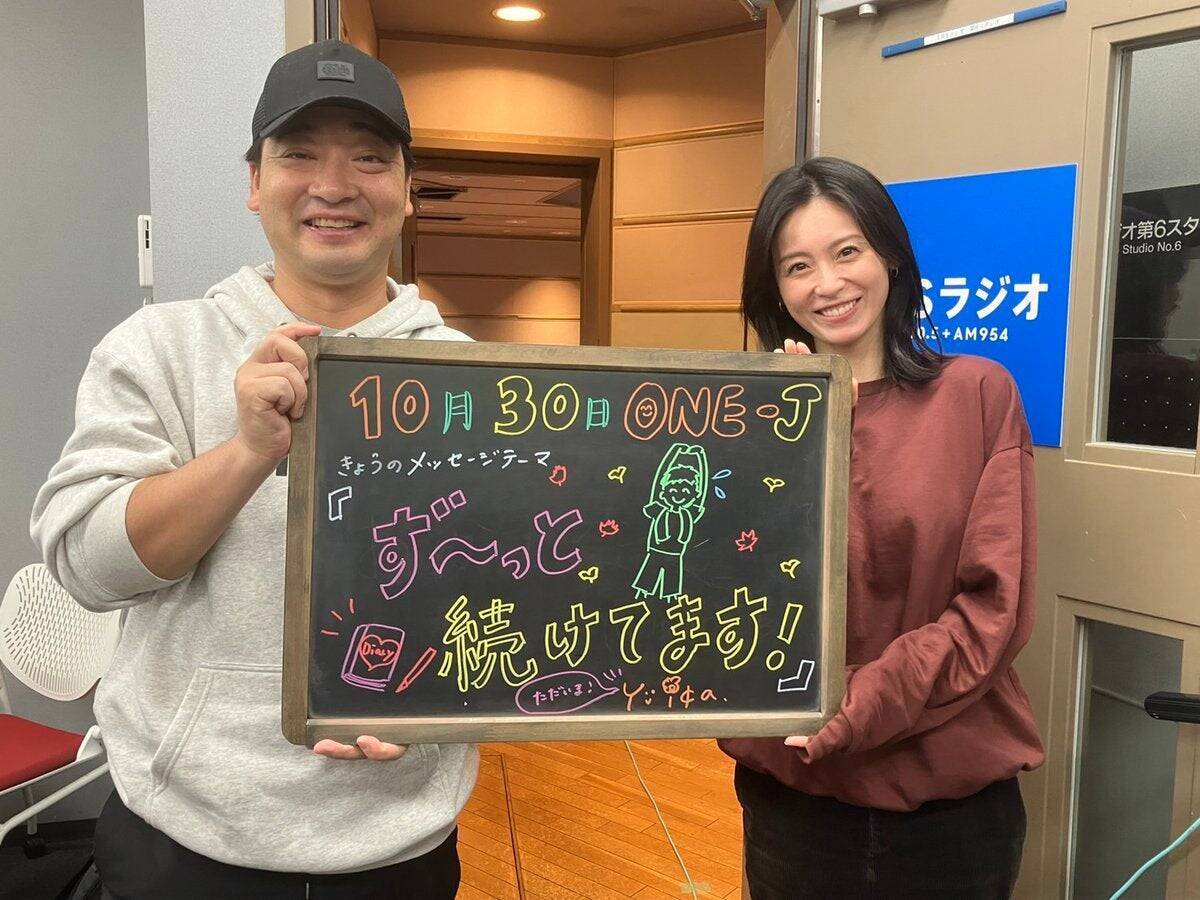 10月30日 ONE-J
きょうのメッセージテーマ
『ず〜っと
続けてます!』
Diary
ただいま!
Sラジオ
0.5+AM954
オ第6スタ
Studio No.6